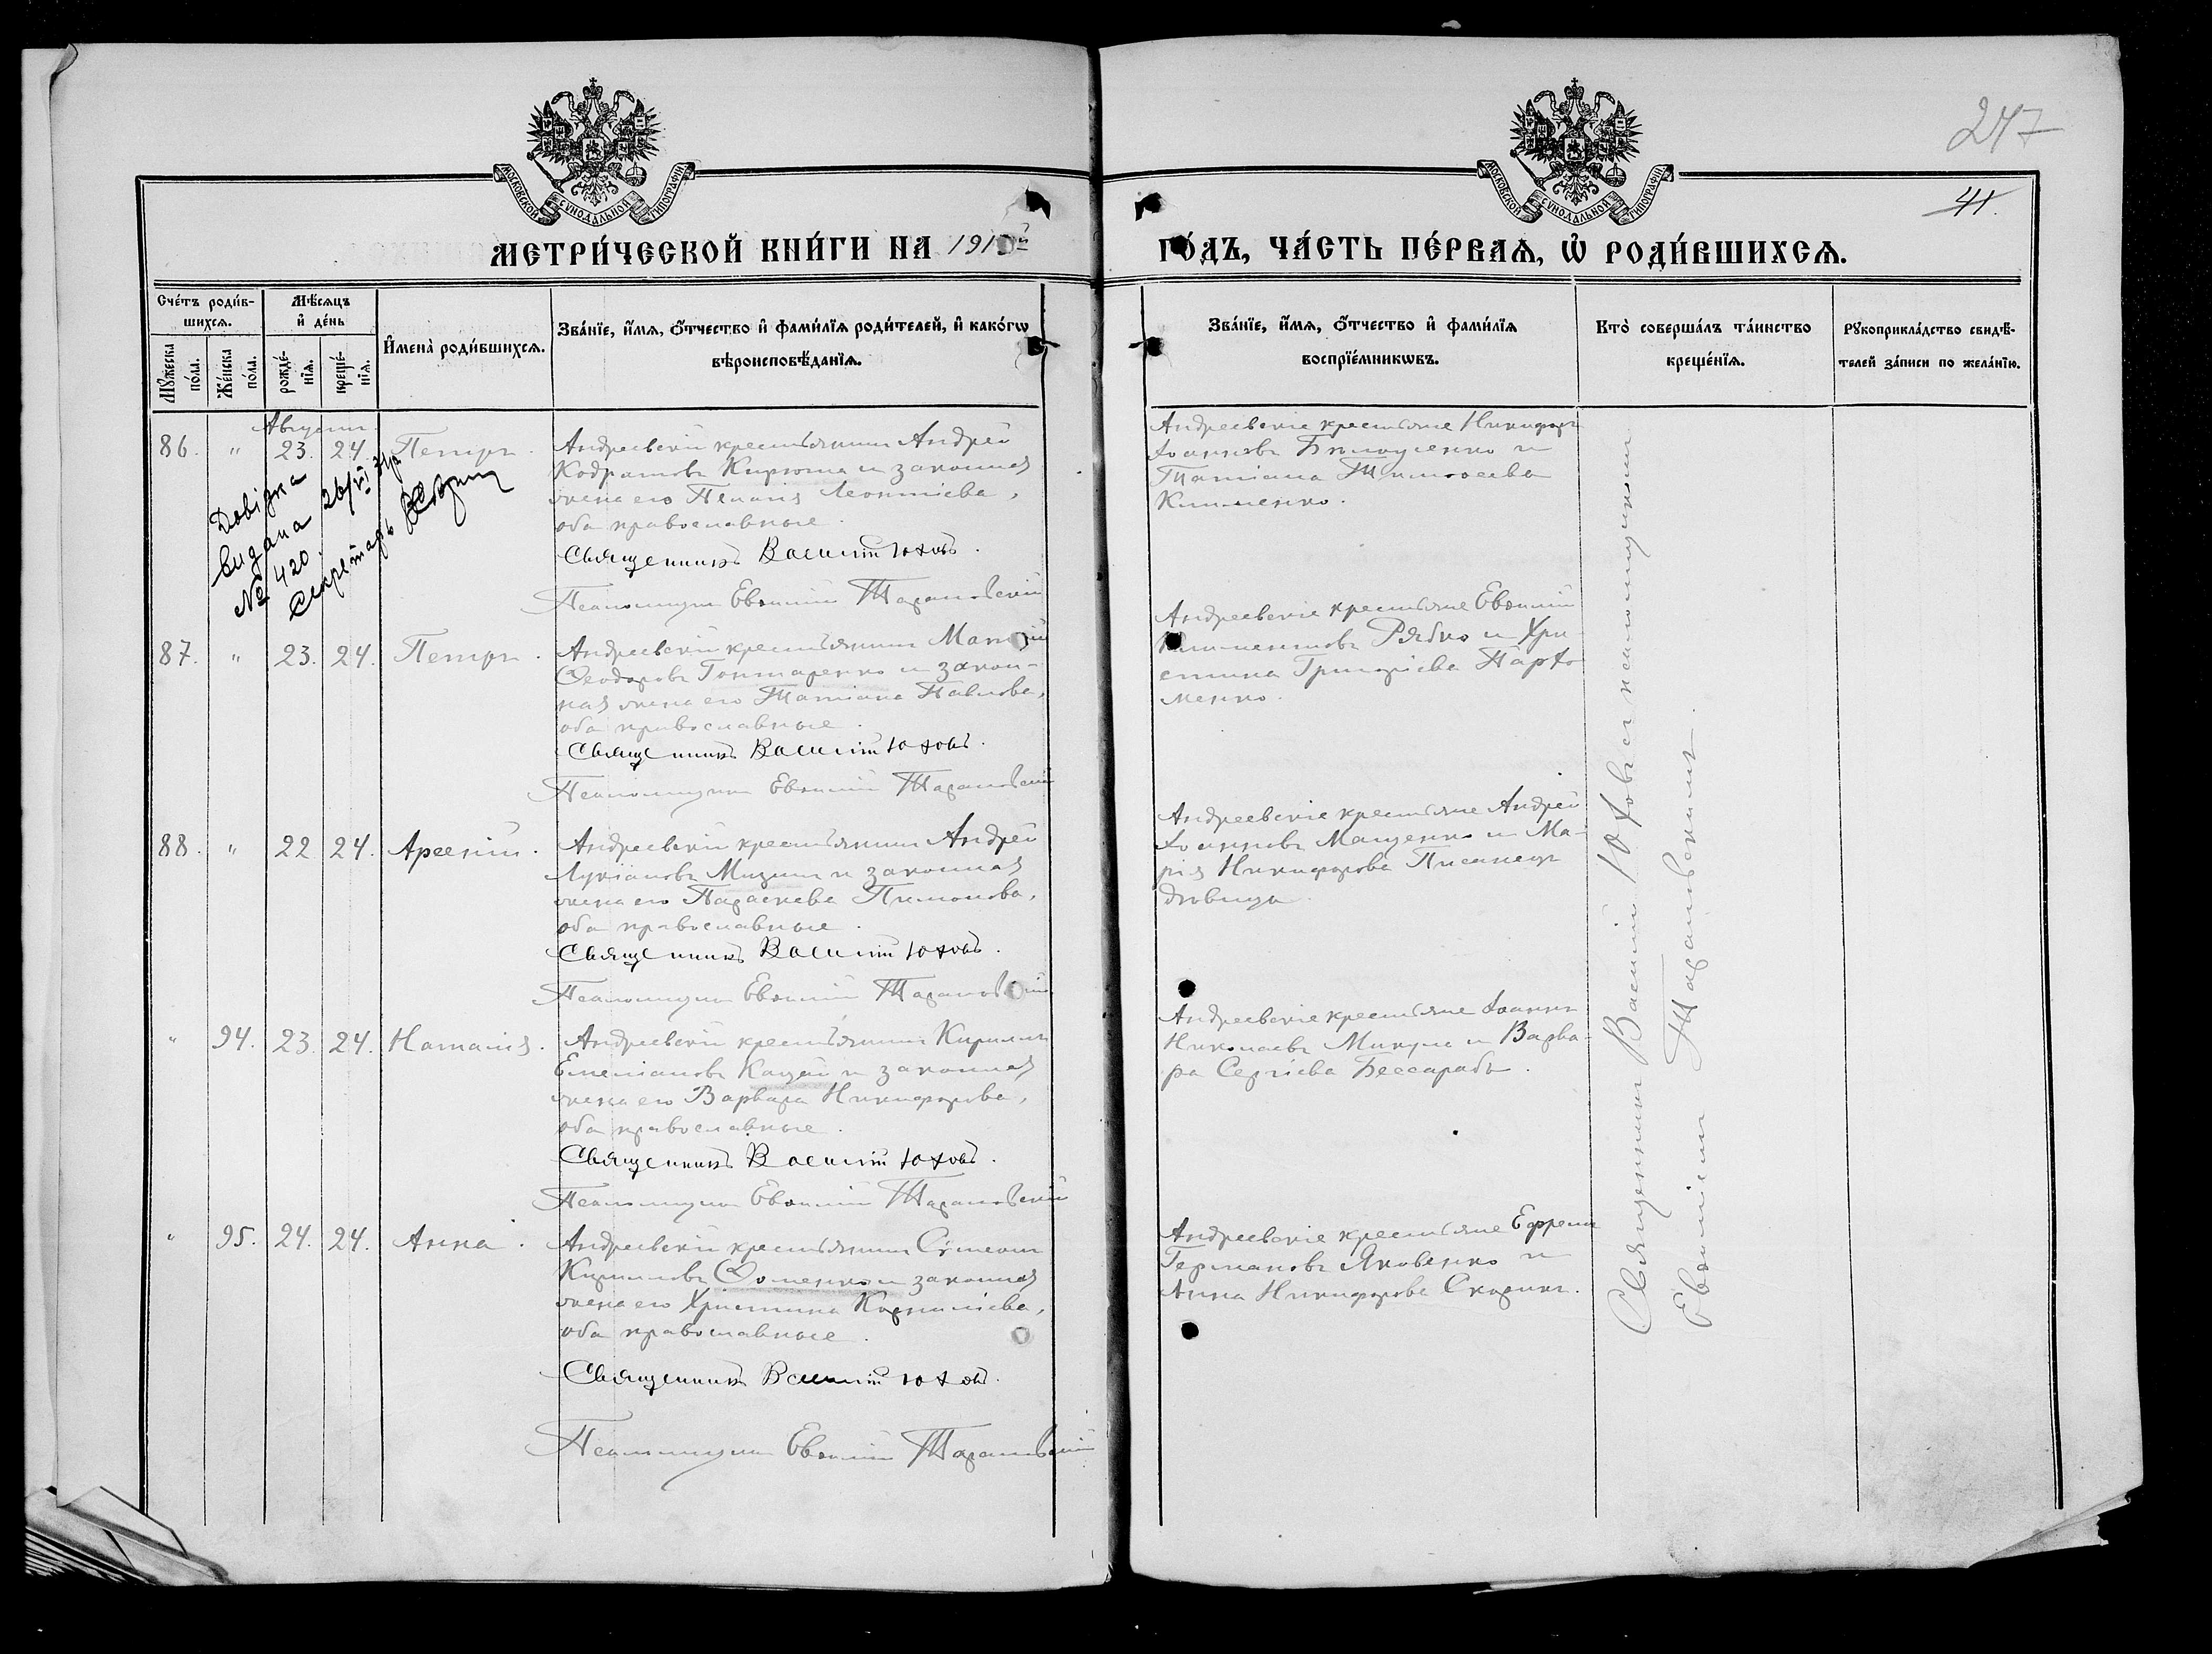 247
41.
МОСКОВСКОЙ СУНОДАЛЬНОЙ ТИПОГРАФІИ
МОСКОВСКОЙ СУНОДАЛЬНОЙ ТИПОГРАФІИ
МЕТРИ́ЧЕСКОЙ КНИ́ГИ НА 191
ГО́ДЪ, ЧА́СТЬ ПЕ́РВАѦ, Ѡ҆ РОДИ́ВШИХСѦ.
Сче́тъ роди́в-
шихсѧ.
Мѣ́сѧцъ
и҆ де́нь
Мꙋ́жеска по́ла.
Же́нска по́ла.
рожде́-
нїѧ.
креще́-
нїѧ.
И҆мена̀ роди́вшихсѧ.
Зва́нїе, и҆́мѧ, ѻ҆́тчество и҆ фами́лїѧ роди́телей, и҆ како́гѡ
вѣроисповѣ́данїѧ.
Зва́нїе, и҆́мѧ, ѻ҆́тчество и҆ фами́лїѧ
воспрїе́мникѡвъ.
Кто̀ соверша́лъ та́инство
креще́нїѧ.
Рꙋкоприкла́дство свидѣ́-
телей за́писи по жела́нїю.
Августъ
86. " 23. 24. Петръ.
Андреевскій крестьянинъ Андрей
Кодратовъ Кирюша и законная
жена его Пелагія Леонтіева,
оба православные.
Священникъ Василій Юховъ.
Псаломщикъ Евѳимій Тарановскій
Андреевскіе крестьяне Никифоръ
Іоанновъ Билоусенко и
Татіана Тимоѳеева
Клименко.
Довідка
видана 26/VI
№ 420.
Секретарь
87. " 23. 24. Петръ.
Андреевскій крестьянинъ
Ѳеодоровъ Гонтаренко и закон-
ная жена его Татіана Павлова,
оба православные.
Священникъ Василій Юховъ.
Псаломщикъ Евѳимій Тарановскій
Андреевскіе крестьяне Евѳимій
Климентовъ Рябко и Хри-
стина Григоріева Пархо-
менко.
88. " 22 24. Арсеній.
Андреевскій крестьянинъ Андрей
Лукіановъ Мизинъ и законная
жена его Параскева Пимонова,
оба православные.
Священникъ Василій Юховъ.
Псаломщикъ Евѳимій Тарановскій
Андреевскіе крестьяне Андрей
Іоанновъ Мащенко и Ма-
рія Никифорова Писанецъ
дѣвица.
" 94. 23. 24. Наталія.
Андреевскій крестьянинъ Кириллъ
Емеліановъ Кацай и законная
жена его Варвара Никифорова,
оба православные.
Священникъ Василій Юховъ.
Псаломщикъ Евѳимій Тарановскій
Андреевскіе крестьяне Іоаннъ
Николаевъ Микула и Варва-
ра Сергіева Бессарабъ.
" 95. 24. 24. Анна.
Андреевскій крестьянинъ Сѵмеонъ
Кирилловъ Ѳоменко и законная
жена его Христина Корниліева,
оба православные.
Священникъ Василій Юховъ.
Псаломщикъ Евѳимій Тарановскій
Андреевскіе крестьяне Ефремъ
Германовъ Яковенко и
Анна Никифорова Скорикъ.
Священникъ Василій Юховъ съ псаломщикомъ
Евѳиміемъ Тарановскимъ.